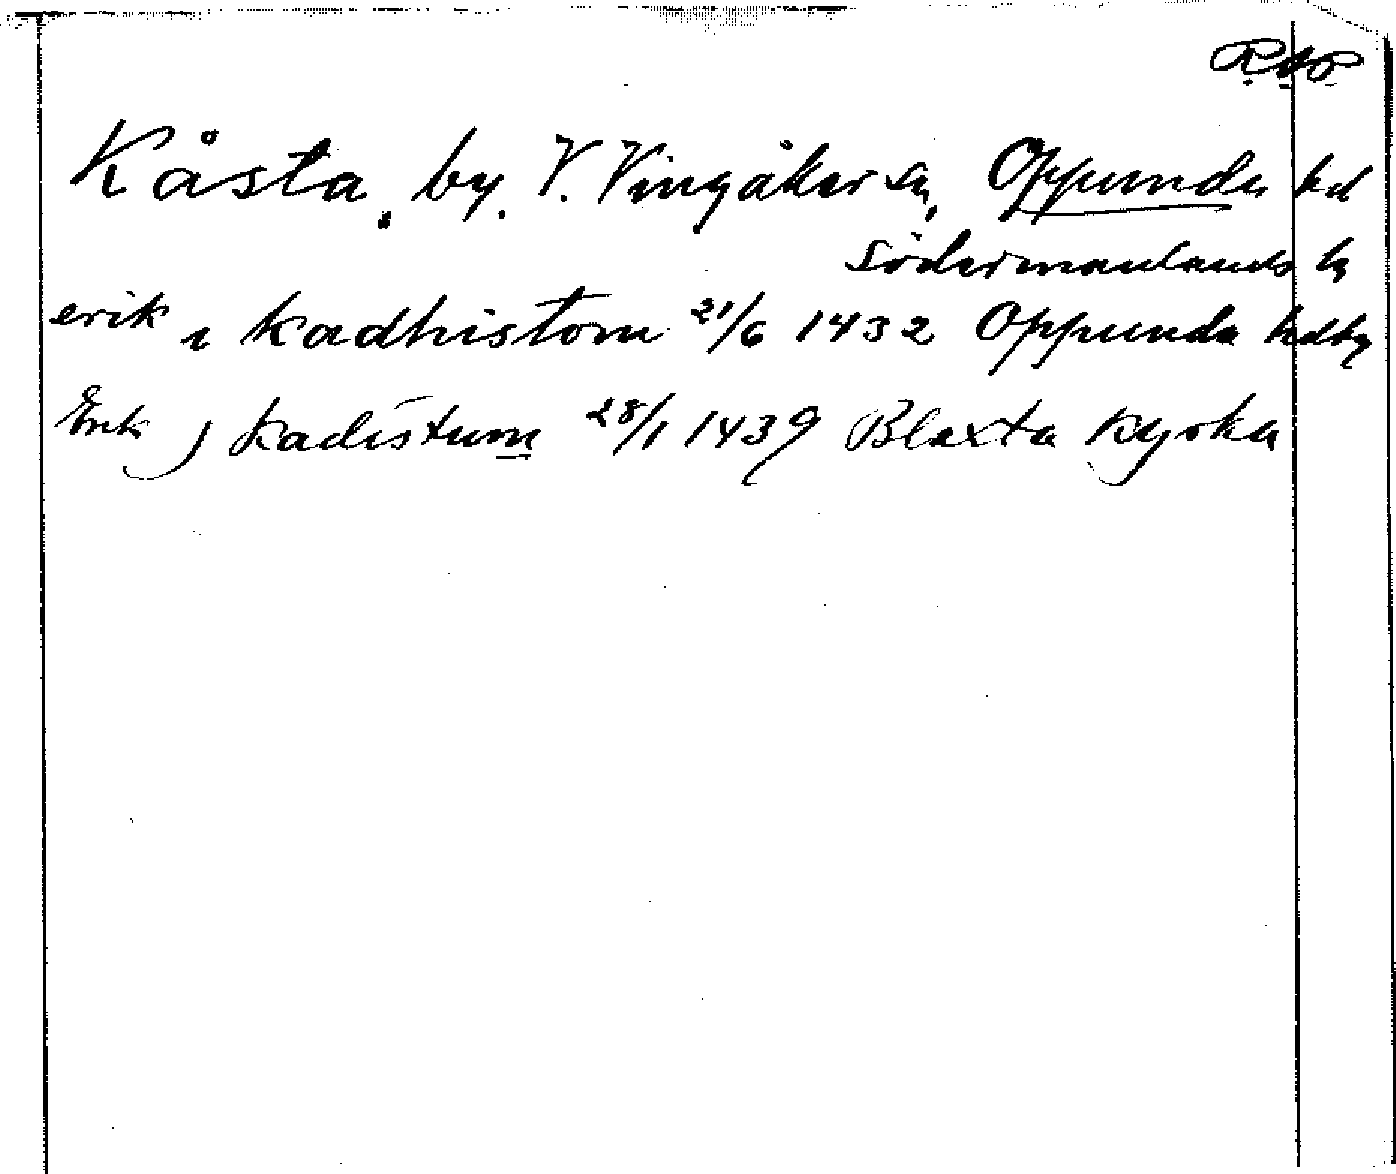 RAP
Kåsta, by, V. Vingåker sn, Oppunda hd
Södermanlands lg
erik i kadhistom 21/6 1432 Oppunda hdtg
Erik j kadistum 28/1 1439 Blaxta kyrka